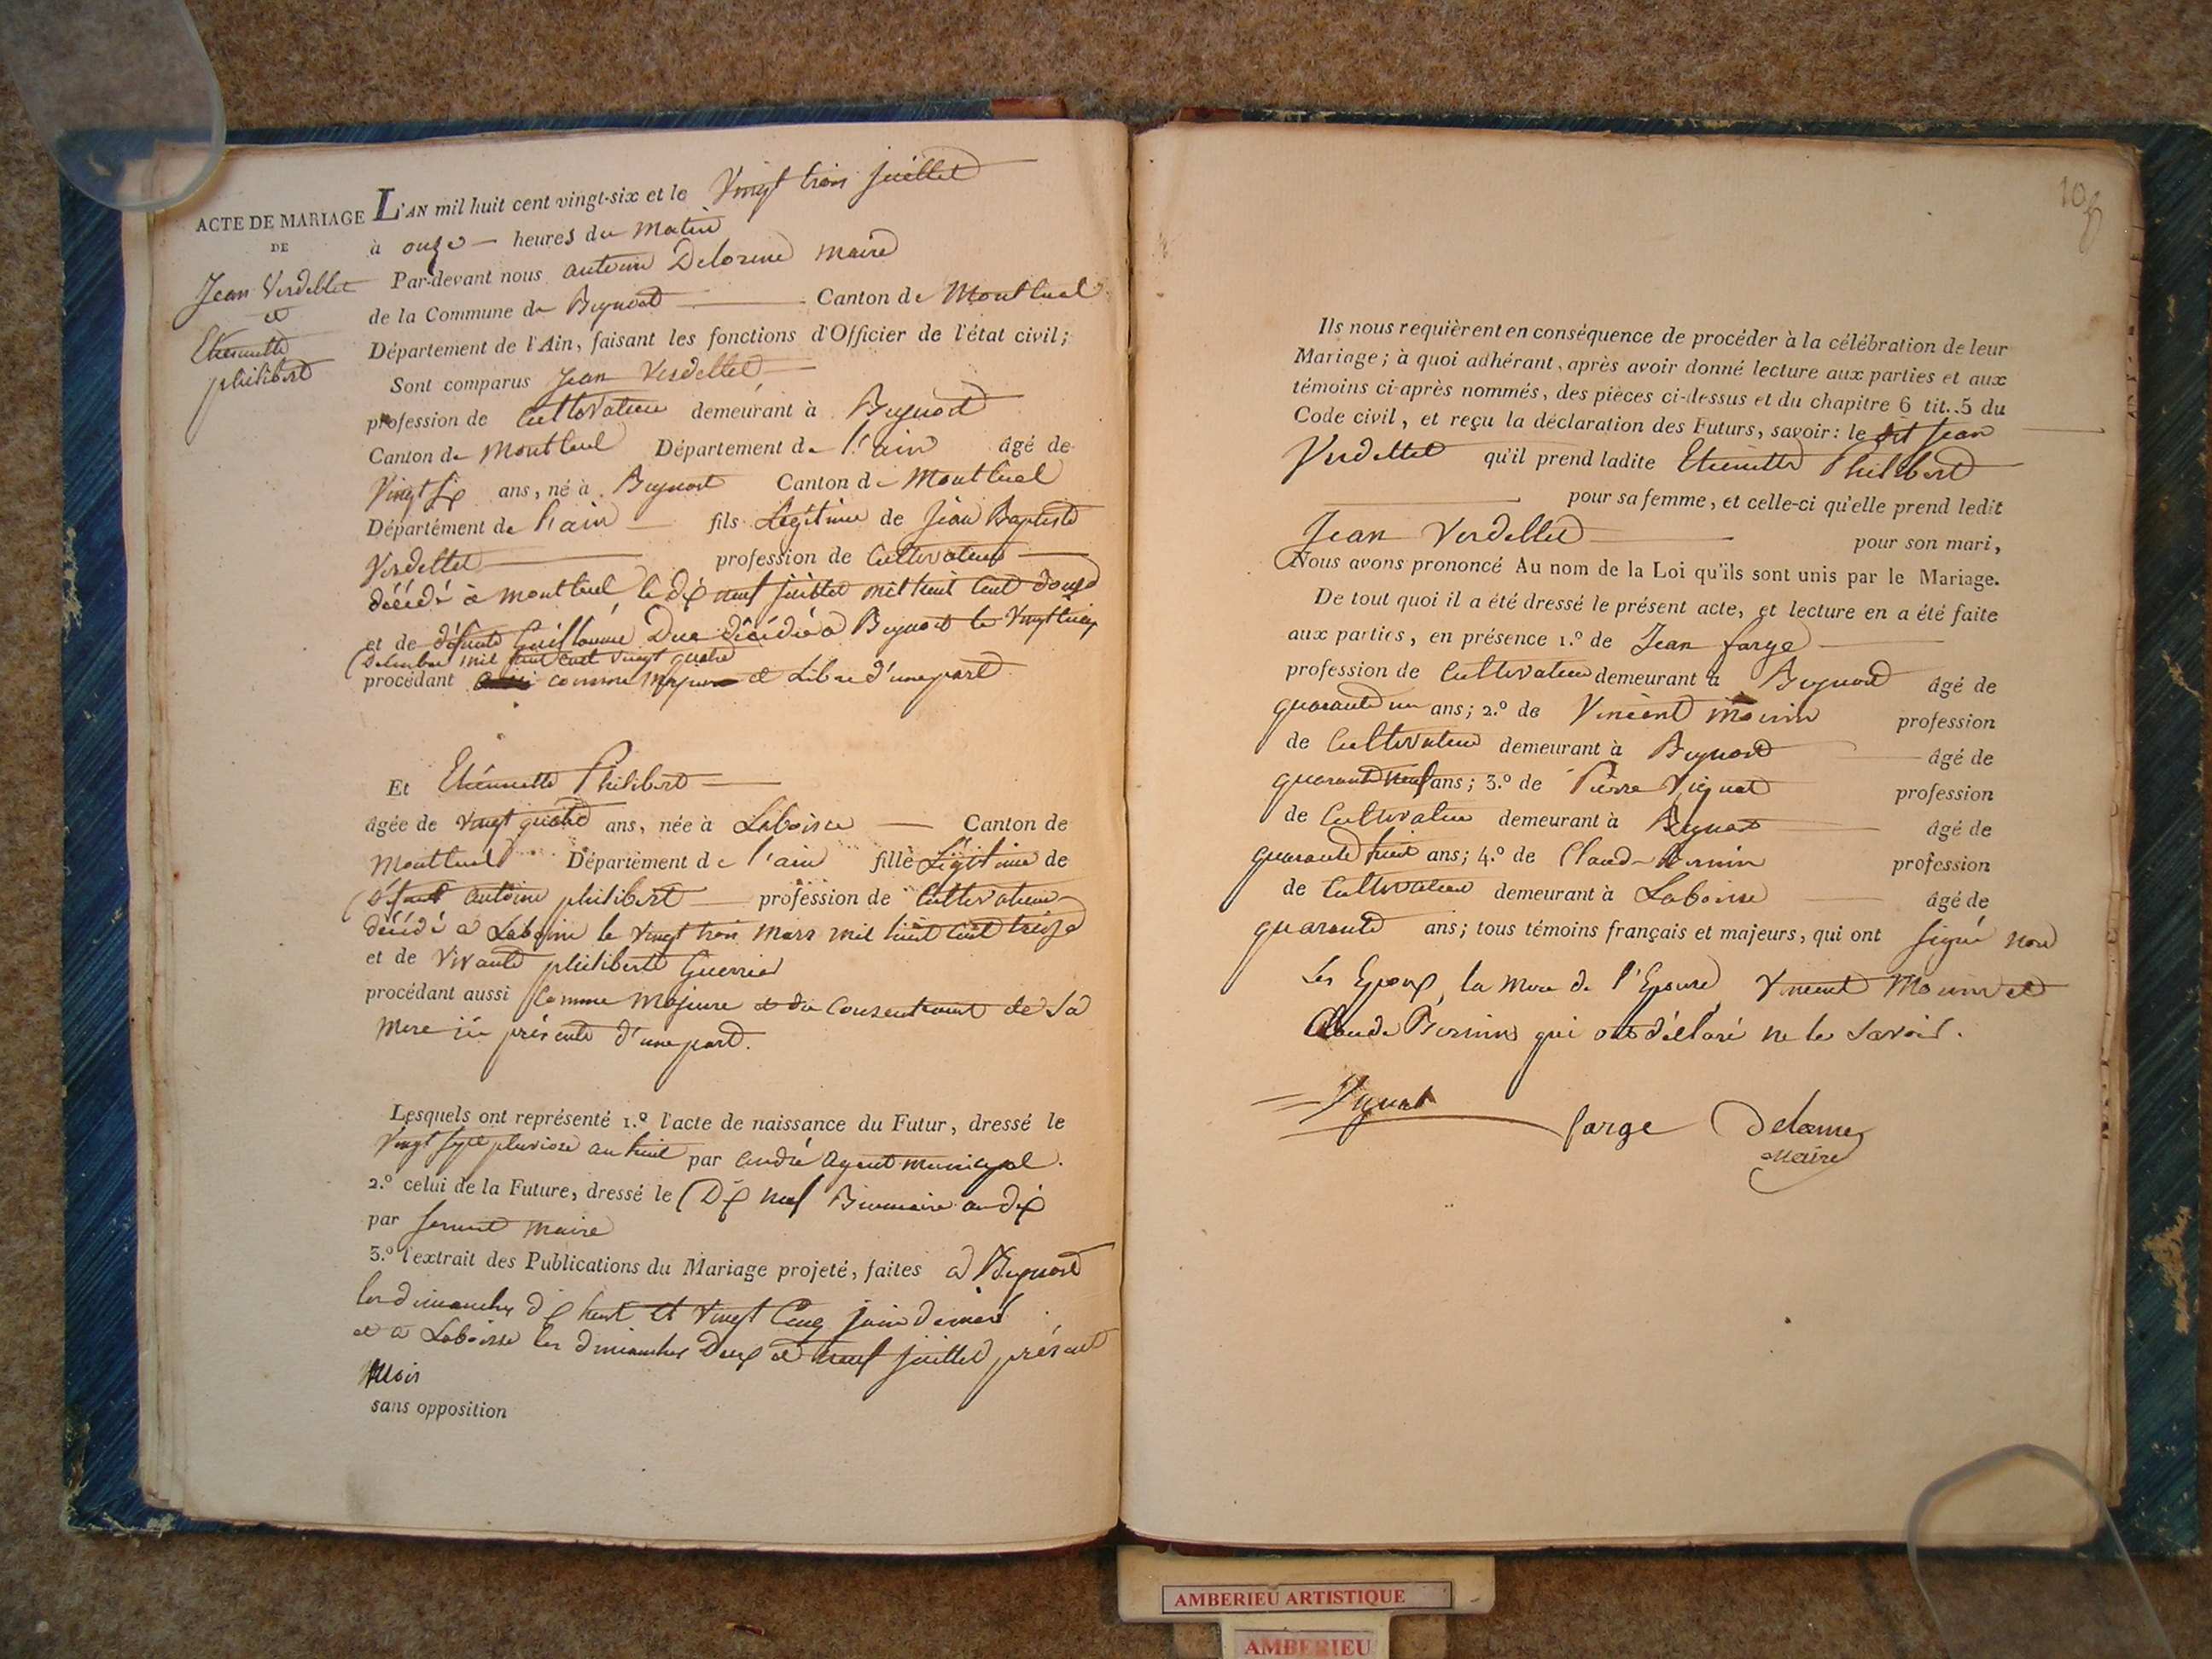 ACTE DE MARIAGE
DE
Jean Verdellet
et
Etiennette
philibert
L'AN mil huit cent vingt-six et le Vingt trois juillet
à onze heures du matin
Par-devant nous antoine Delorme maire
de la Commune de Beynost Canton de Montluel
Département de l'Ain, faisant les fonctions d'Officier de l'état civil;
Sont comparus Jean Verdellet
profession de Cultivateur demeurant à Beynost
Canton de Montluel Département de l'ain âgé de
Vingt six ans, né à Beynost Canton de Montluel
Département de l'ain fils Légitime de Jean Baptiste
Verdellet profession de Cultivateur
décédé à Montluel le dix neuf juillet mil huit cent douze
et de défunte Guillaume Duc décédée à Beynost le Vingt
Décembre mil huit cent vingt quatre
procédant comme Majeur et Libre d'une part
Et Etiennette Philibert
âgée de vingt quatre ans, née à Laboisse Canton de
Montluel Département de l'ain fille Légitime de
Défunt antoine philibert profession de Cultivateur
décédé à Laboisse le vingt trois Mars mil huit cent treize
et de Vivante philiberte Guerrier
procédant aussi Comme Majeure et du Consentement de Sa
Mere ici présente d'une part.
Lesquels ont représenté 1.º l'acte de naissance du Futur, dressé le
Vingt Sept pluviose an huit par andré agent municipal.
2.º celui de la Future, dressé le Dix neuf Brumaire an dix
par maire
3.º l'extrait des Publications du Mariage projeté, faites a Beynost
les dimanches dix huit et vingt Cinq juin dernier
et a Laboisse les dimanches Deux et neuf juillet présent
Mois
sans opposition
Ils nous requièrent en conséquence de procéder à la célébration de leur
Mariage; à quoi adhérant, après avoir donné lecture aux parties et aux
témoins ci-après nommés, des pièces ci-dessus et du chapitre 6 tit. 5 du
Code civil, et reçu la déclaration des Futurs, savoir: le dit Jean
Verdellet qu'il prend ladite Etiennette Philibert
pour sa femme, et celle-ci qu'elle prend ledit
Jean Verdellet pour son mari,
Nous avons prononcé Au nom de la Loi qu'ils sont unis par le Mariage.
De tout quoi il a été dressé le présent acte, et lecture en a été faite
aux parties, en présence 1.º de Jean farge
profession de Cultivateur demeurant à Beynost âgé de
quarante un ans; 2.º de Vincent Mounin profession
de Cultivateur demeurant à Beynost âgé de
quarante neuf ans; 3.º de Pierre Vignat profession
de Cultivateur demeurant à Beynost âgé de
quarante huit ans; 4.º de Claude Bernin profession
de Cultivateur demeurant à Laboisse âgé de
quarante ans; tous témoins français et majeurs, qui ont signé non
Les Epoux, la Mere de l'Epouse, Vincent Mounin et
Claude Bernin qui ont déclaré ne le Savoir.
Vignat
farge
Delorme
Maire
AMBERIEU ARTISTIQUE
AMBERIEU